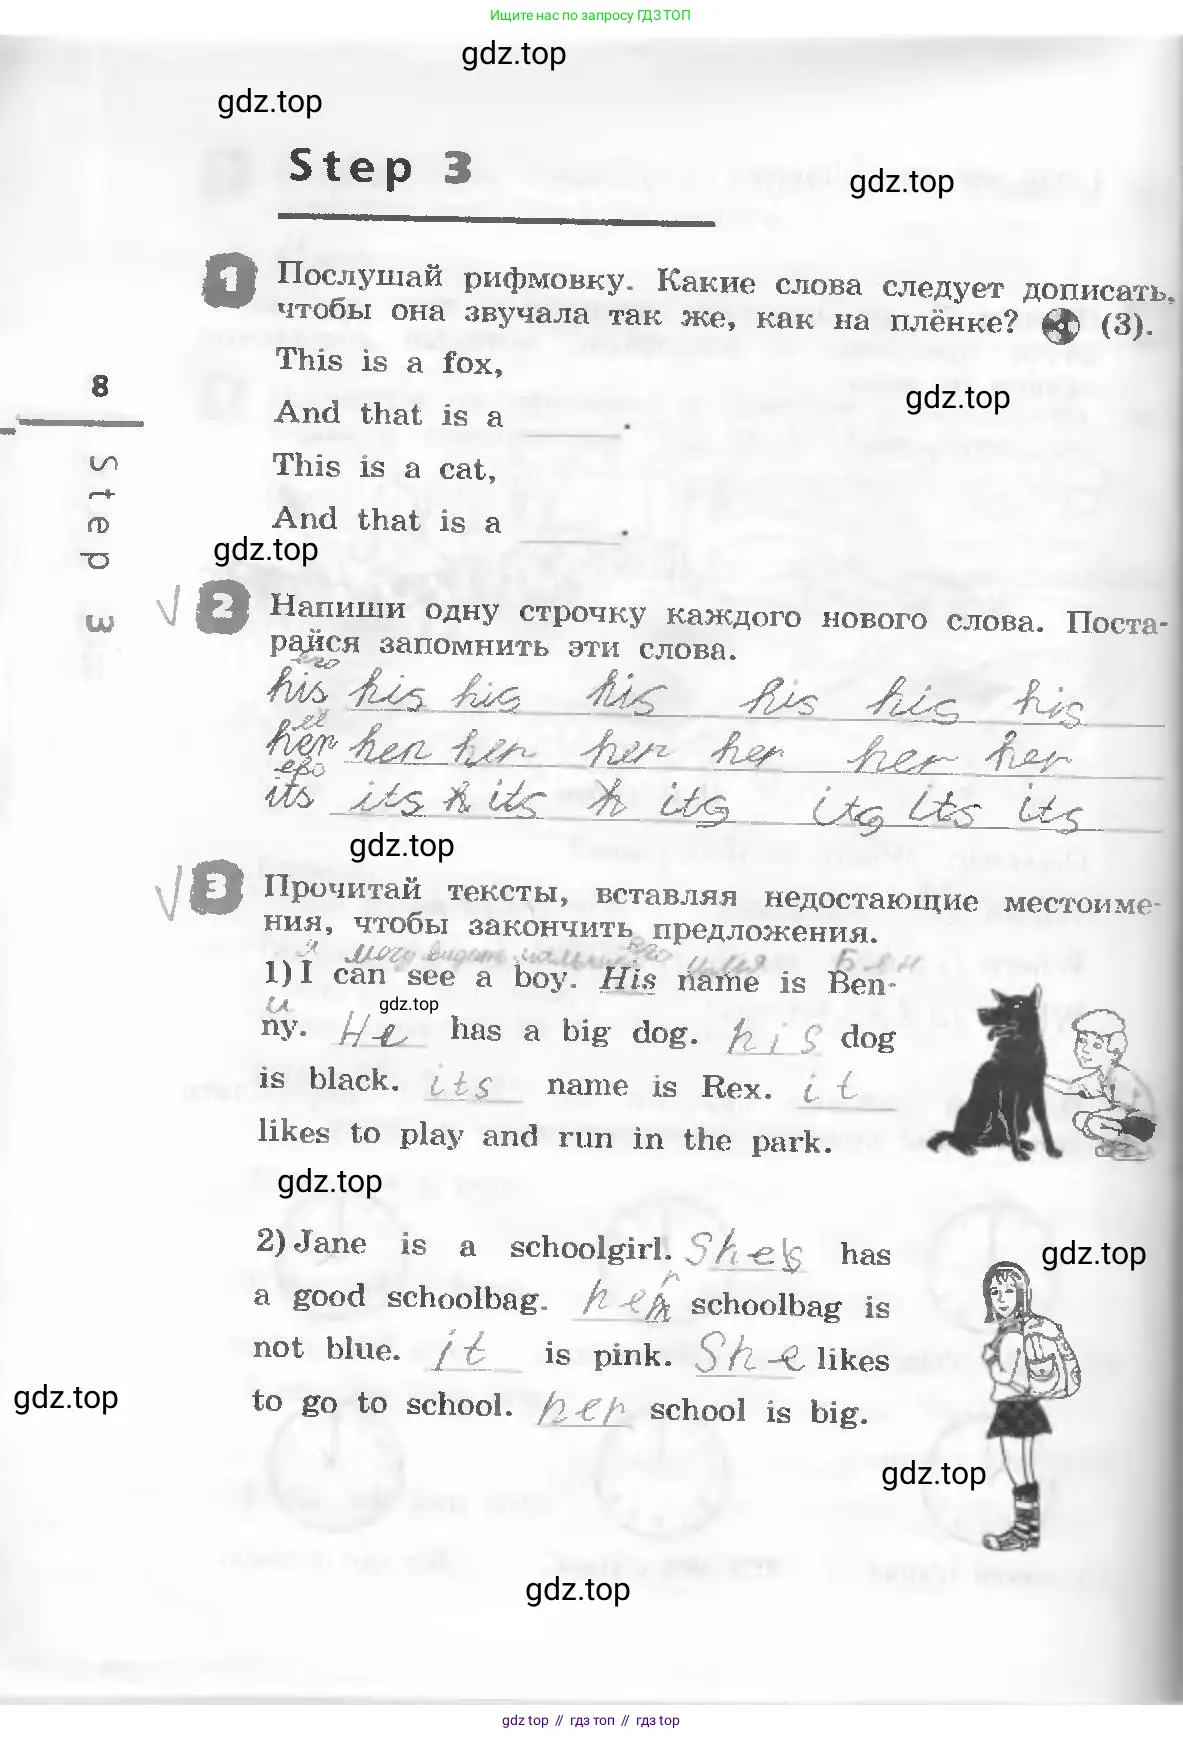 Ищите нас по запросу ГДЗ ТОП
gdz.top
gdz.top
Step 3
gdz.top
1 Послушай рифмовку. Какие слова следует дописать,
чтобы она звучала так же, как на плёнке? (3).
This is a fox,
8
gdz.top
And that is a ____.
Step 3
This is a cat,
And that is a ____.
gdz.top
2 Напиши одну строчку каждого нового слова. Поста-
райся запомнить эти слова.
его
his his his his his his his
её
her her her her her her her
его
its its its its its its its
gdz.top
3 Прочитай тексты, вставляя недостающие местоиме-
ния, чтобы закончить предложения.
я могу видеть его имя Бен
1) I can see a boy. His name is Ben-
и
gdz.top
ny. He has a big dog. his dog
is black. its name is Rex. it
likes to play and run in the park.
gdz.top
2) Jane is a schoolgirl. She has
gdz.top
a good schoolbag. her schoolbag is
not blue. it is pink. She likes
gdz.top
to go to school. her school is big.
gdz.top
gdz.top
gdz top // гдз топ // gdz top